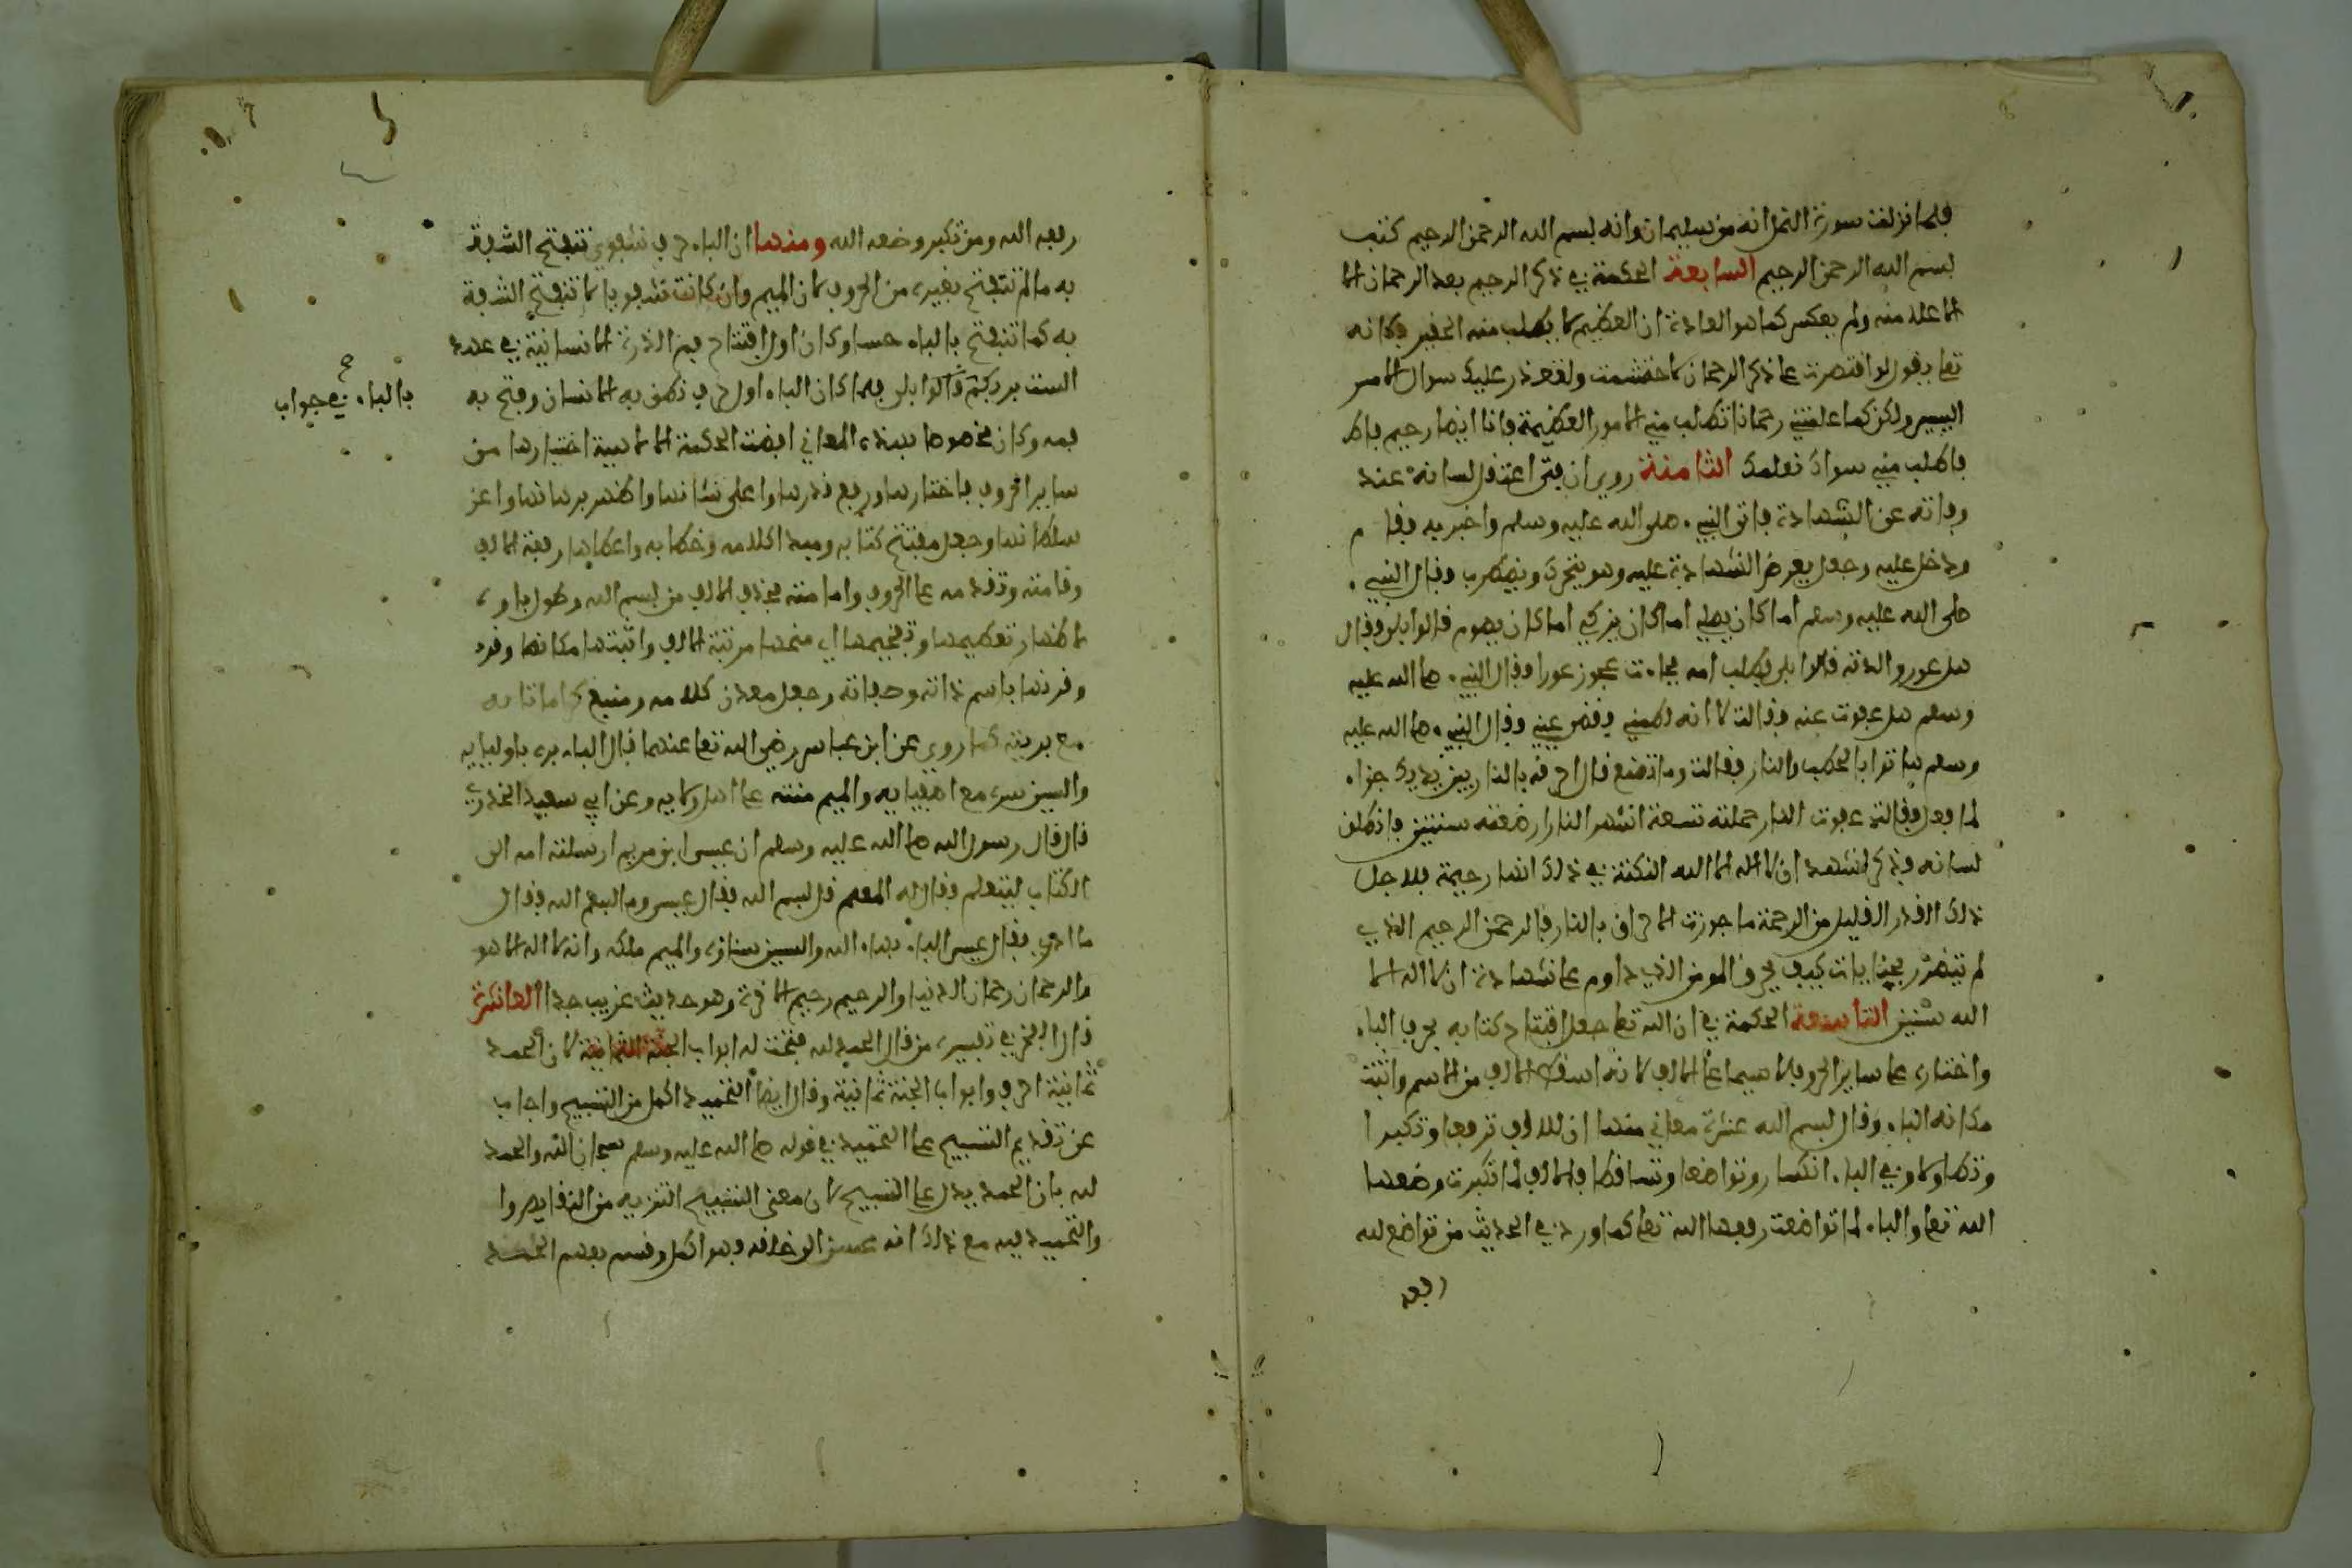 فلما نزلت سورة النمل انه من سليمان وانه بسم الله الرحمن الرحيم كتب
بسم الله الرحمن الرحيم السابعة الحكمة في ذكر الرحيم بعد الرحمان الا
الاعلا منه ولم يعكس كما هو العادة ان العظيم لا يطلب منه الحقير فكانه
تعا يقول لو اقتصرت على ذكر الرحمان لاحتشمت ولتعذر عليك سوال الامر
اليسير ولكن كما علمتني رحمانا تطلب مني الامور العظيمة فانا ايضا رحيم فاط
فاطلب مني سواك نعلمك الثامنة روي ان فتى اعتقل لسانه عند
وفاته عن الشهادة فاتى النبي صلى الله عليه وسلم واخبر به فقام
ودخل عليه وجعل يعرض الشهادة عليه وهو يتحرك ويضطرب فقال النبي
صلى الله عليه وسلم اما كان يصلي اما كان يزكي اما كان يصوم قالوا بلى فقال
هل عق والدته قالوا بلى فطلب امه فجاءت عجوز عورا فقال النبي صلى الله عليه
وسلم هل عفوت عنه فقالت لا انه لطمني ففقى عيني فقال النبي صلى الله عليه
وسلم هاتوا بالحطب والنار فقالت وما تصنع قال احرقه بالنار بين يديك جزاء
لما فعل فقالت عفوت النار حملته تسعة اشهر النار ارضعته سنتين فانطلق
لسانه وذكر اشهد ان لا اله الا الله النكتة في ذلك انها رحيمة فلاجل
ذلك القدر القليل من الرحمة ما جوزت الاحراق بالنار فالرحمن الرحيم الذي
لم يتضرر بجنايات كيف يحرق المومن الذي داوم على شهادة ان لا اله الا
الله سنين التاسعة الحكمة في ان الله تعا جعل افتتاح كتابه بحرف الباء
واختاره على ساير الحروف لا سيما على الالف لانه اسقط الالف من الاسم واثبت
مكانه الباء وقال بسم الله عشرة معاني منها ان للالف ترفعا وتكبرا
وتطاولا وفي الباء انكسار وتواضعا وتساقطا فالالف لما تكبرت وضعها
الله تعا والباء لما تواضعت رفعها الله تعا كما ورد في الحديث من تواضع لله
رفعه
رفعه الله ومن تكبر وضعه الله ومنها ان الباء حرف شفوي تنفتح الشفة
به ما لم تنفتح بغيره من الحروف لان الميم وان كانت شفويا لا تنفتح الشفة
به كما تنفتح بالباء حسا وكان اول افتتاح فم الذرة الانسانية في عهد
الست بربكم قالوا بلى فلما كان الباء اول حرف نطق به الانسان وفتح به
بالباء في جواب
فمه وكان مخصوصا بهذه المعاني اقتضت الحكمة الالاهية اختيارها من
ساير الحروف فاختارها ورفع قدرها واعلى شانها واظهر برهانها واعز
سلطانها وجعل مفتتح كتابه ومبدا كلامه وخطابه واعطاها رفعة الالف
وقامته وتقدمه على الحروف وامامته بحذف الالف من بسم الله وطول باوه
لاظهار تعظيمها وتفخيمها اي منحها مرتبة الالف واثبتها مكانها وقرن
وقرنها باسم ذاته وصفاته وجعل معدن كلامه ومنبع كراماتا به
مع بريته كما روي عن ابن عباس رضي الله تعا عنهما قال الباء بره باوليايه
والسين سره مع اصفيايه والميم منته على اهل ولايه وعن ابي سعيد الخدري
قال قال رسول الله صلى الله عليه وسلم ان عيسى ابن مريم ارسلته امه الى
الكتاب ليتعلم فقال له المعلم قل بسم الله فقال عيسى وما بسم الله فقال
ما ادري فقال عيسى الباء بهاء الله والسين سناؤه والميم ملكه وانه لا اله الا هو
والرحمان رحمان الدنيا والرحيم رحيم الاخرة وهو حديث غريب جدا العاشرة
قال الفخر في تفسيره من قال الحمد لله فتحت له ابواب الجنة الثمانية لان الحمد
ثمانية احرف وابواب الجنة ثمانية وقال ايضا التحميد اكمل من التسبيح واجاب
عن تقديم التسبيح على التحميد في قوله صلى الله عليه وسلم سبحان الله والحمد
لله بان الحمد يدل على التسبيح لان معنى التسبيح التنزيه من النقايص وا
والتحميد فيه مع ذلك انه محسن الى خلقه فهو اكمل وقسم بعضهم الحمد